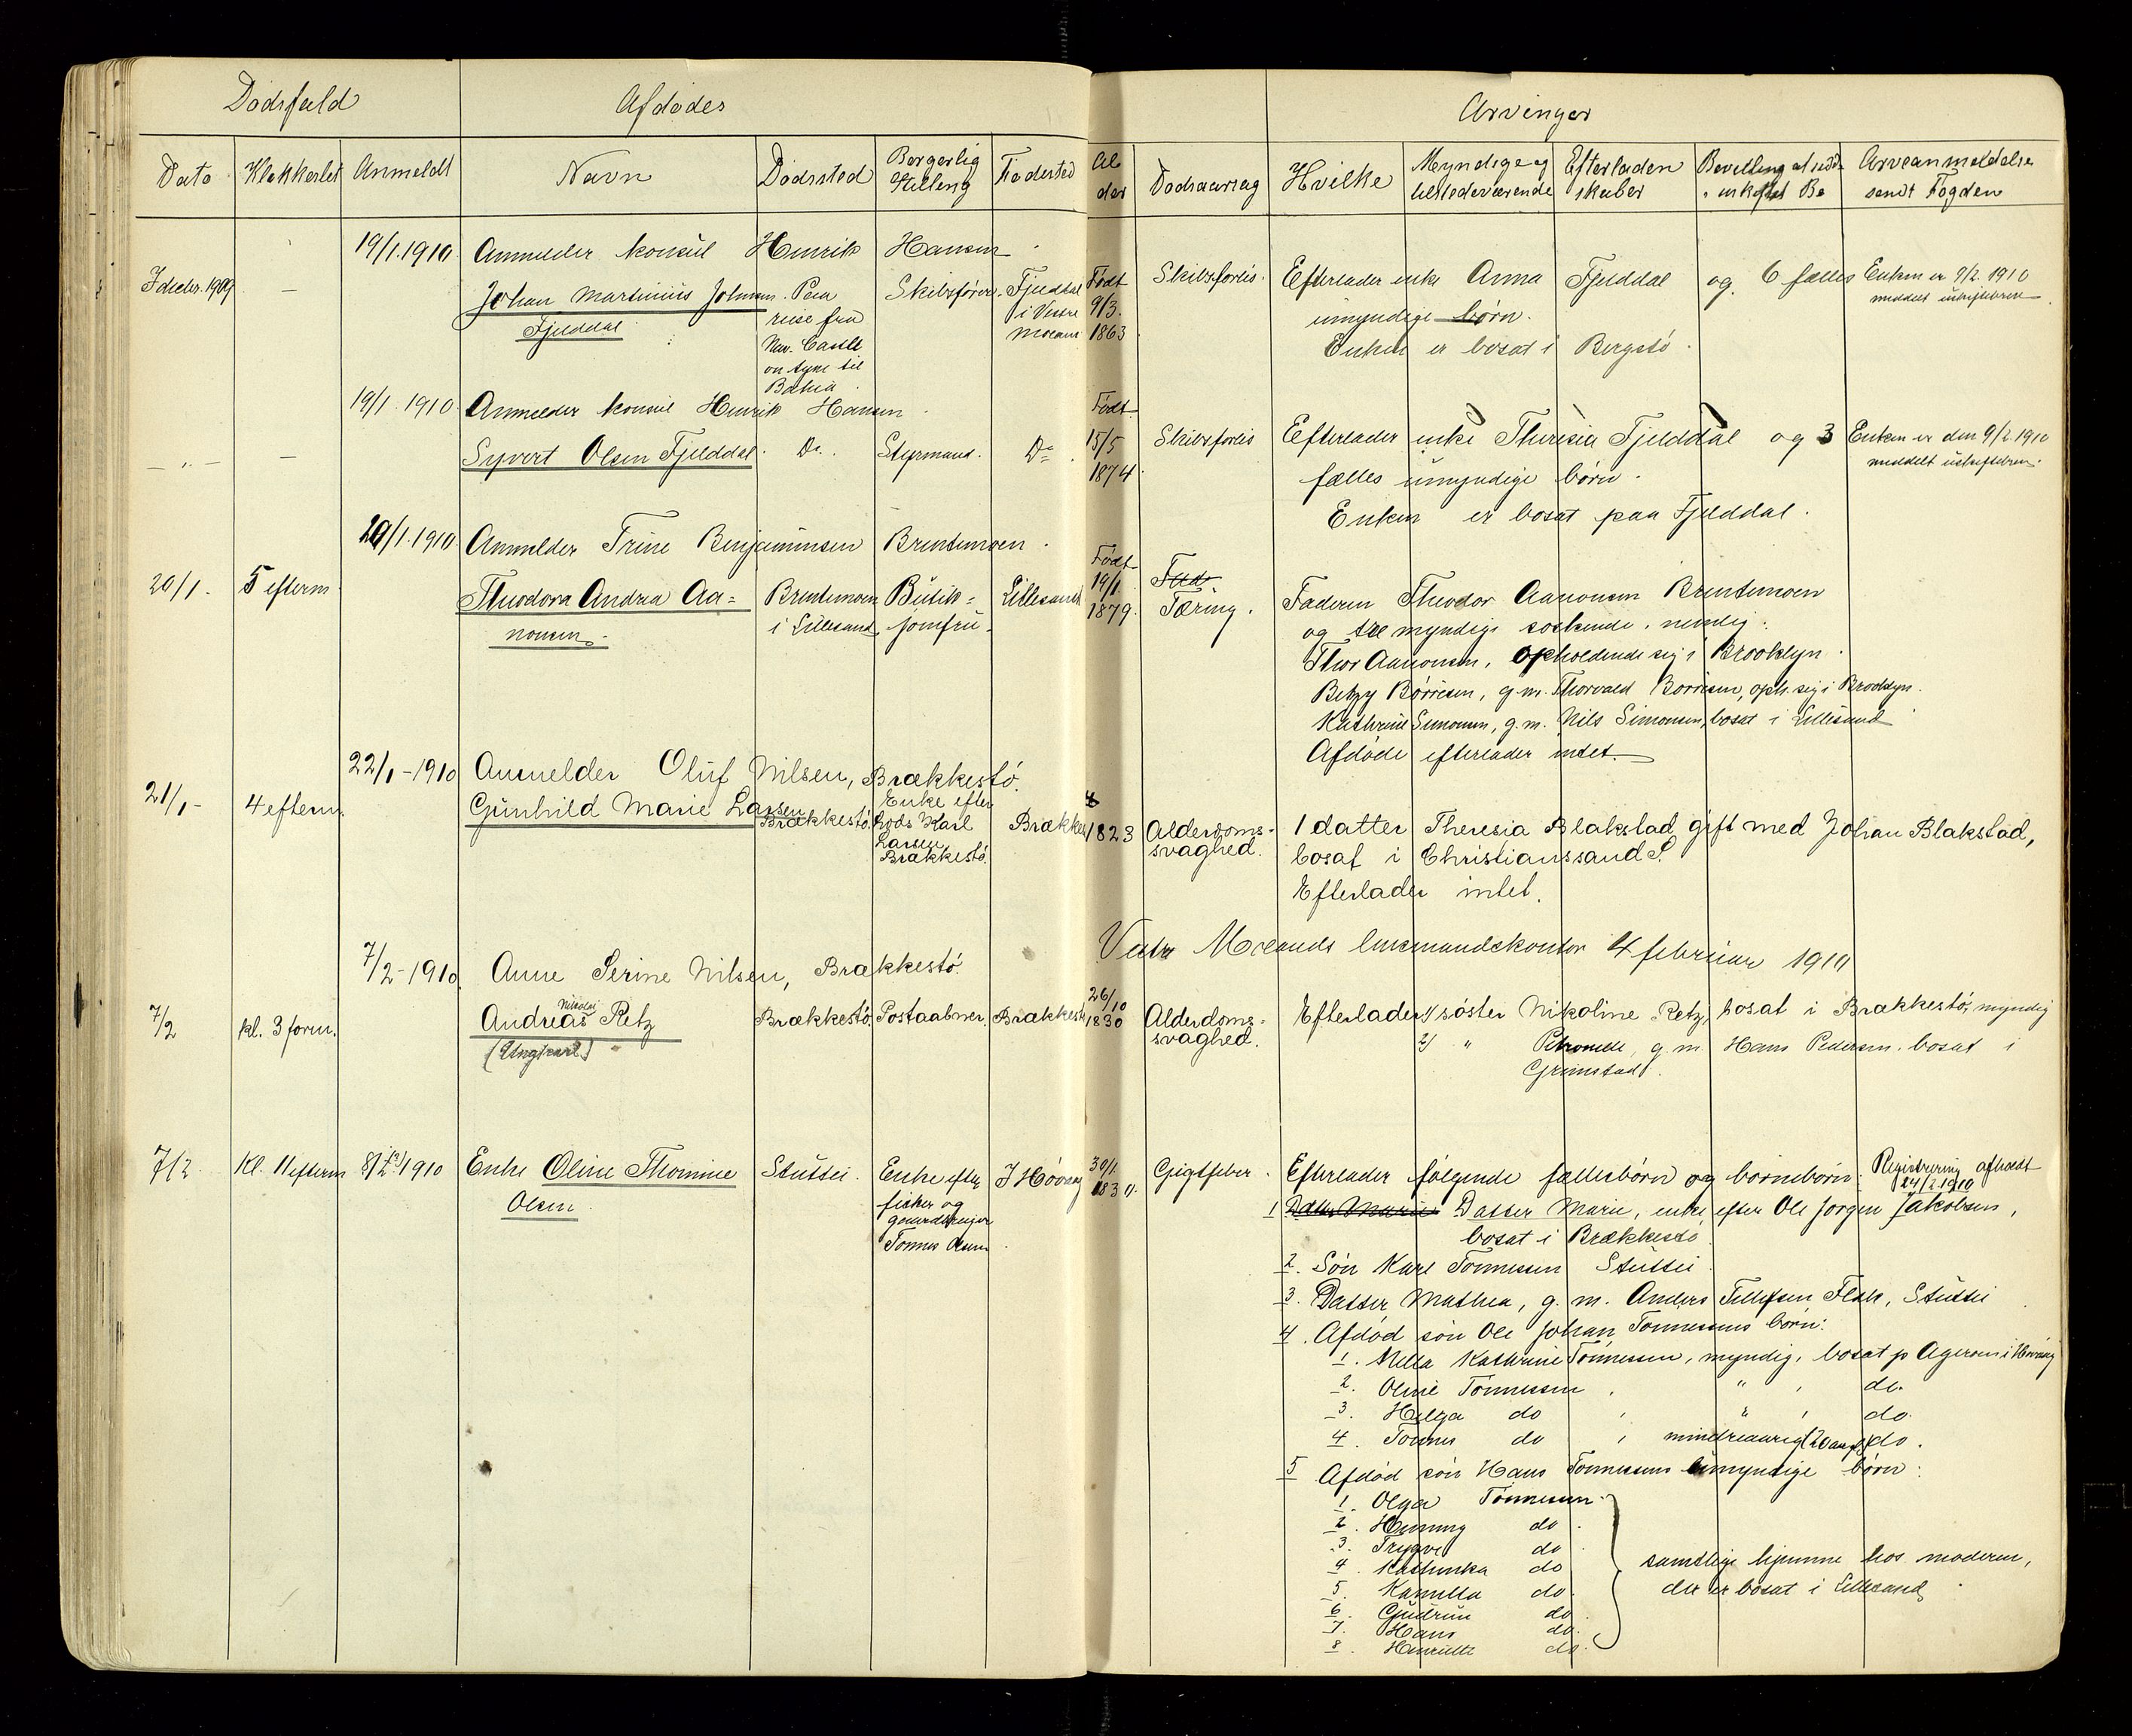 Dødsfald
Afdødes
Arvinger
Dato Klokkeslet Anmeldt Navn Dødssted Borgerlig Stilling Fødested Alder Dødsaarsag Hvilke Myndige og tilstedeværende Efterladenskaber Bevilling at sidde i uskiftet Bo Arveanmeldelse sendt Fogden
19/1.1910 Anmelder konsul Henrik Hansen
I decbr. 1909 — Johan Martinius Johnsen Paa Skibsfører. Fjeldal Født Skibsforlis. Efterlader enke Anna Fjelddal og 6 fælles Enken er 9/2 1910
Fjelddal. reise fra i Vestre 9/3. umyndige børn. meddelt uskiftebrev
New. Castle Moland 1863 Enken er bosat i Bergstø.
on tyne til
Bahia.
19/1.1910 Anmelder konsul Henrik Hansen. Født
— " — — Syvert Olsen Fjelddal. Do. Styrmand. Do. 15/5 Skibsforlis Efterlader enke Theresia Fjelddal og 3 Enken er den 9/2 1910
1874. fælles umyndige børn. meddelt uskiftebrev.
Enken er bosat paa Fjelddal.
20/1.1910 Anmelder Trine Benjaminsen Brentemoen.
Født
20/1. 5 efterm. Theodora Andrea Aa= Brentemoen Butik= Lillesand 19/1 Tæring. Faderen Theodor Aanonsen Brentemoen
nonsen. i Lillesand. jomfru. 1879. og tre myndige søskende, nemlig:
Thor Aanonsen, opholdende sig i Brooklyn.
Betzy Børresen, g.m. Thorvald Børresen, oph. sig i Brooklyn.
Kathrine Simonsen, g.m. Nils Simonsen, bosat i Lillesand
Afdøde efterlader intet.
22/1-1910 Anmelder Oluf Nilsen, Brækkestø.
21/1- 4 efterm. Gunhild Marie Larsen Brækkestø. Enke efter Lods Karl Larsen Brækkestø. Brækkes 1823 Alderdoms- 1 datter Theresia Blakstad gift med Johan Blakstad,
svaghed. bosat i Christianssand S.
Efterlader intet.
Vestre Molands lensmandskontor 4 februar 1910
7/2-1910. Anne Serine Nilsen, Brækkestø.
7/2 kl. 3 form. Andreas Nikolai Retz Brækkestø. Postaabner. Brækkestø 26/10 1830 Alderdoms- Efterlader 1/ søster Nikoline Retz, bosat i Brækkestø, myndig
(Ungkarl) svaghed. 2/ " Petronelle, g.m. Hans Pedersen. bosat i
Grimstad.
7/2. Kl. 11 efterm 8/2 1910 Enke Oline Thomine Stutsei. Enke efter I Høvaag 30/1. Gigtfeber. Efterlader følgende fællesbørn og børnebørn: Registrering afholdt
Olsen. fisker og 24/2.1910
gaardbruger 1 Datter Marie, enke efter Ole Jørgen Jakobsen,
Tønnes Olsen bosat i Brækkestø.
2. Søn Karl Tønnessen Stutsei.
3. Datter Mathea, g. m. Anders Tellefsen Flak, Stutsei
4. Afdød søn Ole Johan Tønnessens børn:
1. Nella Kathrine Tønnessen, myndig, bosat p Agerøen i Høvaag
2. Oline Tønnessen, " , do.
3. Helga do , " , do.
4. Tønnes do , mindreaarig (20 aar) do.
5 Afdød søn Hans Tønnessens umyndige børn:
1. Olga Tønnessen.
2. Henning do.
3. Trygve do
4. Kathinka do samtlige hjemme hos moderen,
5. Kamilla do. der er bosat i Lillesand.
6. Gudrun do.
7. Hans do.
8. Henriette do.